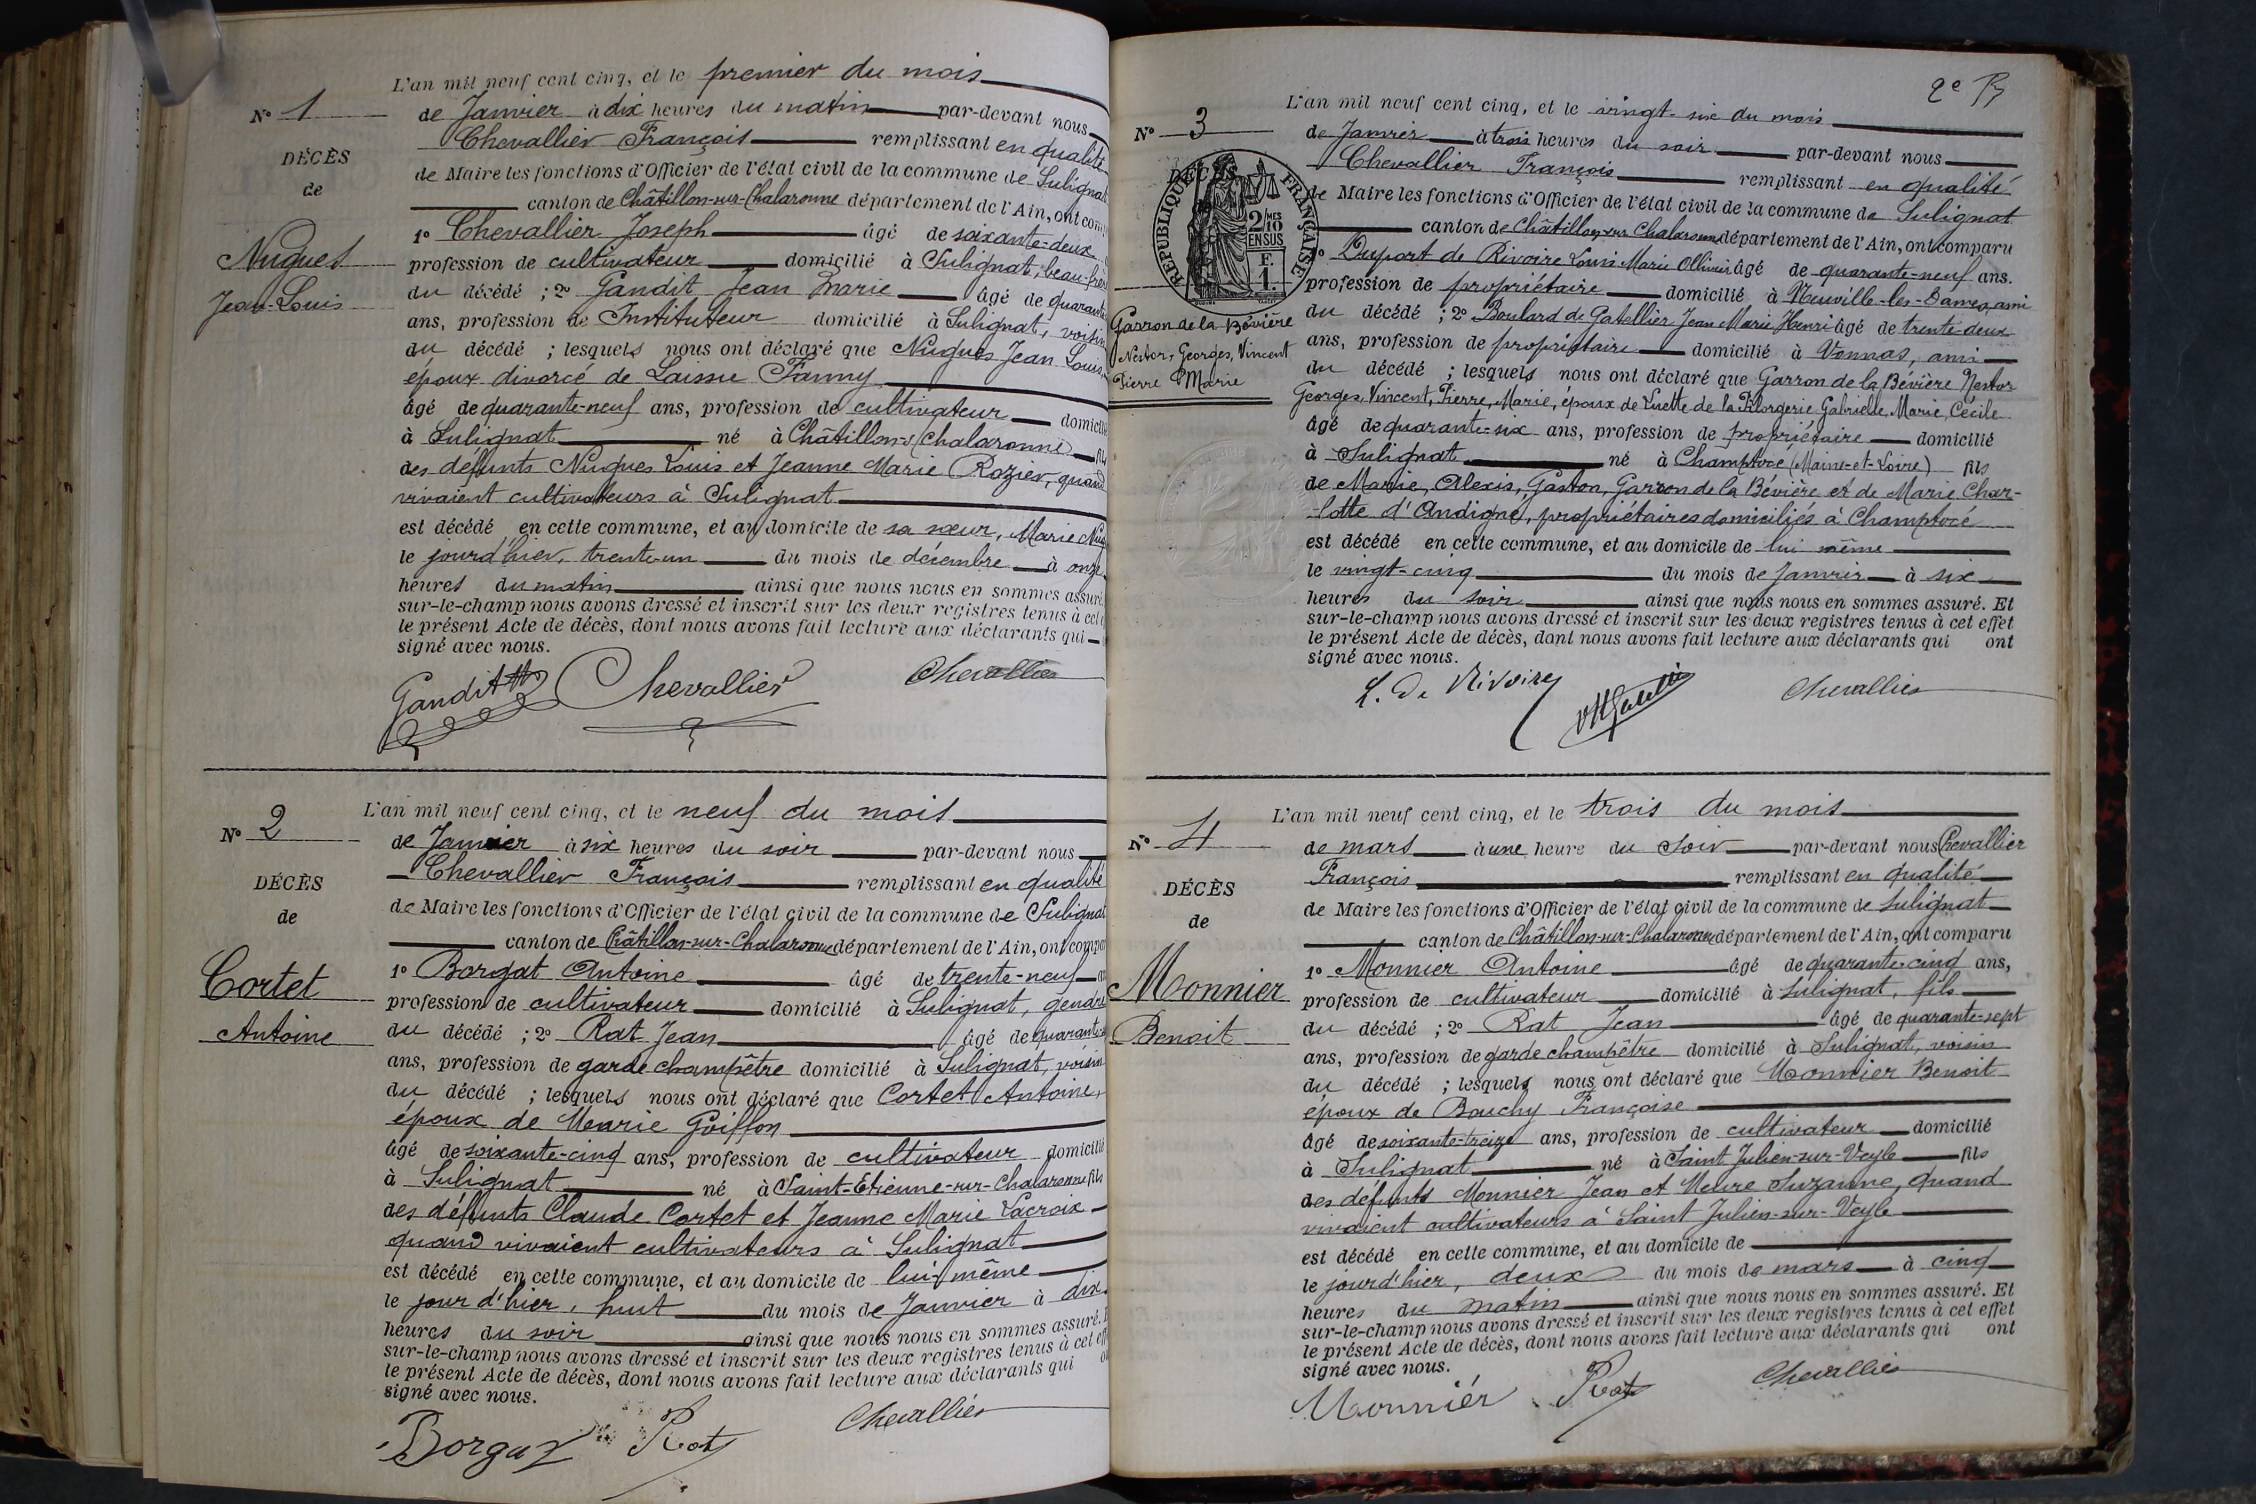 L'an mil neuf cent cinq, et le premier du mois
N° 1
de Janvier à dix heures du matin par-devant nous
Chevallier François remplissant en qualité
DÉCÈS
de Maire les fonctions d'Officier de l'état civil de la commune de Sulignat
de
canton de Châtillon-sur-Chalaronne département de l'Ain, ont comp
1° Chevallier Joseph âgé de soixante-deux
Nugues
profession de cultivateur domicilié à Sulignat, beau-frère
Jean-Louis
du décédé ; 2° Gandit Jean Marie âgé de quarante
ans, profession de Instituteur domicilié à Sulignat, voisin
du décédé ; lesquels nous ont déclaré que Nugues Jean Louis
époux divorcé de Laissu Fanny
âgé de quarante-neuf ans, profession de cultivateur domicilié
à Sulignat né à Châtillon-s/Chalaronne fils
des défunts Nugues Louis et Jeanne Marie Rozier, quand
vivaient cultivateurs à Sulignat
est décédé en cette commune, et au domicile de sa sœur, Marie Nug
le jourd'hier, trente-un du mois de décembre à onze
heures du matin ainsi que nous nous en sommes assuré.
sur-le-champ nous avons dressé et inscrit sur les deux registres tenus à cet
le présent Acte de décès, dont nous avons fait lecture aux déclarants qui
signé avec nous.
Gandit Chevallier Chevallier
L'an mil neuf cent cinq, et le neuf du mois
N° 2
de Janvier à six heures du soir par-devant nous
Chevallier François remplissant en qualité
DÉCÈS
de Maire les fonctions d'Officier de l'état civil de la commune de Sulignat
de
canton de Châtillon-sur-Chalaronne département de l'Ain, ont compa
1° Borgat Antoine âgé de trente-neuf
Cortet
profession de cultivateur domicilié à Sulignat, gendre
Antoine
du décédé ; 2° Rat Jean âgé de quarante-
ans, profession de garde champêtre domicilié à Sulignat, voisin
du décédé ; lesquels nous ont déclaré que Cortet Antoine,
époux de Marie Goiffon
âgé de soixante-cinq ans, profession de cultivateur domicilié
à Sulignat né à Saint-Etienne-sur-Chalaronne fils
des défunts Claude Cortet et Jeanne Marie Lacroix
quand vivaient cultivateurs à Sulignat
est décédé en cette commune, et au domicile de lui-même
le jour d'hier, huit du mois de Janvier à dix
heures du soir ainsi que nous nous en sommes assuré.
sur-le-champ nous avons dressé et inscrit sur les deux registres tenus à cet eff
le présent Acte de décès, dont nous avons fait lecture aux déclarants qui
signé avec nous.
Borgat Rat Chevallier
2e
L'an mil neuf cent cinq, et le vingt-six du mois
N° 3
de Janvier à trois heures du soir par-devant nous
DÉCÈS
Chevallier François remplissant en qualité
RÉPUBLIQUE FRANÇAISE
2/10 MES EN SUS
F. 1
de Maire les fonctions d'Officier de l'état civil de la commune de Sulignat
canton de Châtillon-sur-Chalaronne département de l'Ain, ont comparu
1° Duport de Rivoire Louis Marie Ollivier âgé de quarante-neuf ans.
profession de propriétaire domicilié à Neuville-les-Dames, ami
Garron de la Bévière
Nestor, Georges, Vincent
Pierre Marie
du décédé ; 2° Boulard de Gatellier Jean Marie Henri âgé de trente-deux
ans, profession de propriétaire domicilié à Vonnas, ami
du décédé ; lesquels nous ont déclaré que Garron de la Bévière Nestor
Georges, Vincent, Pierre, Marie, époux de Luette de la Pilorgerie Gabrielle, Marie, Cécile
âgé de quarante-six ans, profession de propriétaire domicilié
à Sulignat né à Champtocé (Maine-et-Loire) fils
de Marie, Alexis, Gaston, Garron de la Bévière et de Marie Char-
lotte d'Andigné, propriétaires domiciliés à Champtocé
est décédé en cette commune, et au domicile de lui même
le vingt-cinq du mois de Janvier à six
heures du soir ainsi que nous nous en sommes assuré. Et
sur-le-champ nous avons dressé et inscrit sur les deux registres tenus à cet effet
le présent Acte de décès, dont nous avons fait lecture aux déclarants qui ont
signé avec nous.
L. de Rivoire Chevallier
L'an mil neuf cent cinq, et le trois du mois
N° 4
de mars à une heure du soir par-devant nous Chevallier
François remplissant en qualité
DÉCÈS
de Maire les fonctions d'Officier de l'état civil de la commune de Sulignat
de
canton de Châtillon-sur-Chalaronne département de l'Ain, ont comparu
1° Monnier Antoine âgé de quarante-cinq ans,
Monnier
profession de cultivateur domicilié à Sulignat, fils
Benoit
du décédé ; 2° Rat Jean âgé de quarante-sept
ans, profession de garde champêtre domicilié à Sulignat, voisin
du décédé ; lesquels nous ont déclaré que Monnier Benoit
époux de Bouchy Françoise
âgé de soixante-treize ans, profession de cultivateur domicilié
à Sulignat né à Saint Julien-sur-Veyle fils
des défunts Monnier Jean et Suzanne, quand
vivaient cultivateurs à Saint Julien-sur-Veyle
est décédé en cette commune, et au domicile de
le jourd'hier, deux du mois de mars à cinq
heures du matin ainsi que nous nous en sommes assuré. Et
sur-le-champ nous avons dressé et inscrit sur les deux registres tenus à cet effet
le présent Acte de décès, dont nous avons fait lecture aux déclarants qui ont
signé avec nous.
Monnier Rat Chevallier